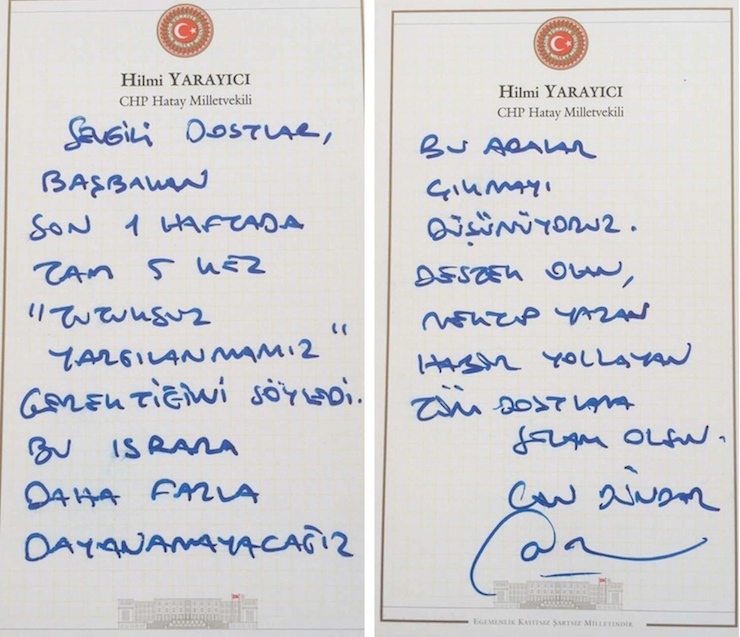 Hilmi YARAYICI
CHP Hatay Milletvekili
SEVGİLİ DOSTLAR,
BAŞBAKAN
SON 1 HAFTADA
TAM 5 KEZ
"TUTUKSUZ
YARGILANMAMIZ"
GEREKTİĞİNİ SÖYLEDİ.
BU ISRARA
DAHA FAZLA
DAYANAMAYACAĞIZ
Hilmi YARAYICI
CHP Hatay Milletvekili
BU ARALAR
ÇIKMAYI
DÜŞÜNÜYORUZ.
DESTEK OLAN,
MEKTUP YAZAN
HABER YOLLAYAN
TÜM DOSTLARA
SELAM OLSUN.
CAN DÜNDAR
Can
EGEMENLİK KAYITSIZ ŞARTSIZ MİLLETİNDİR